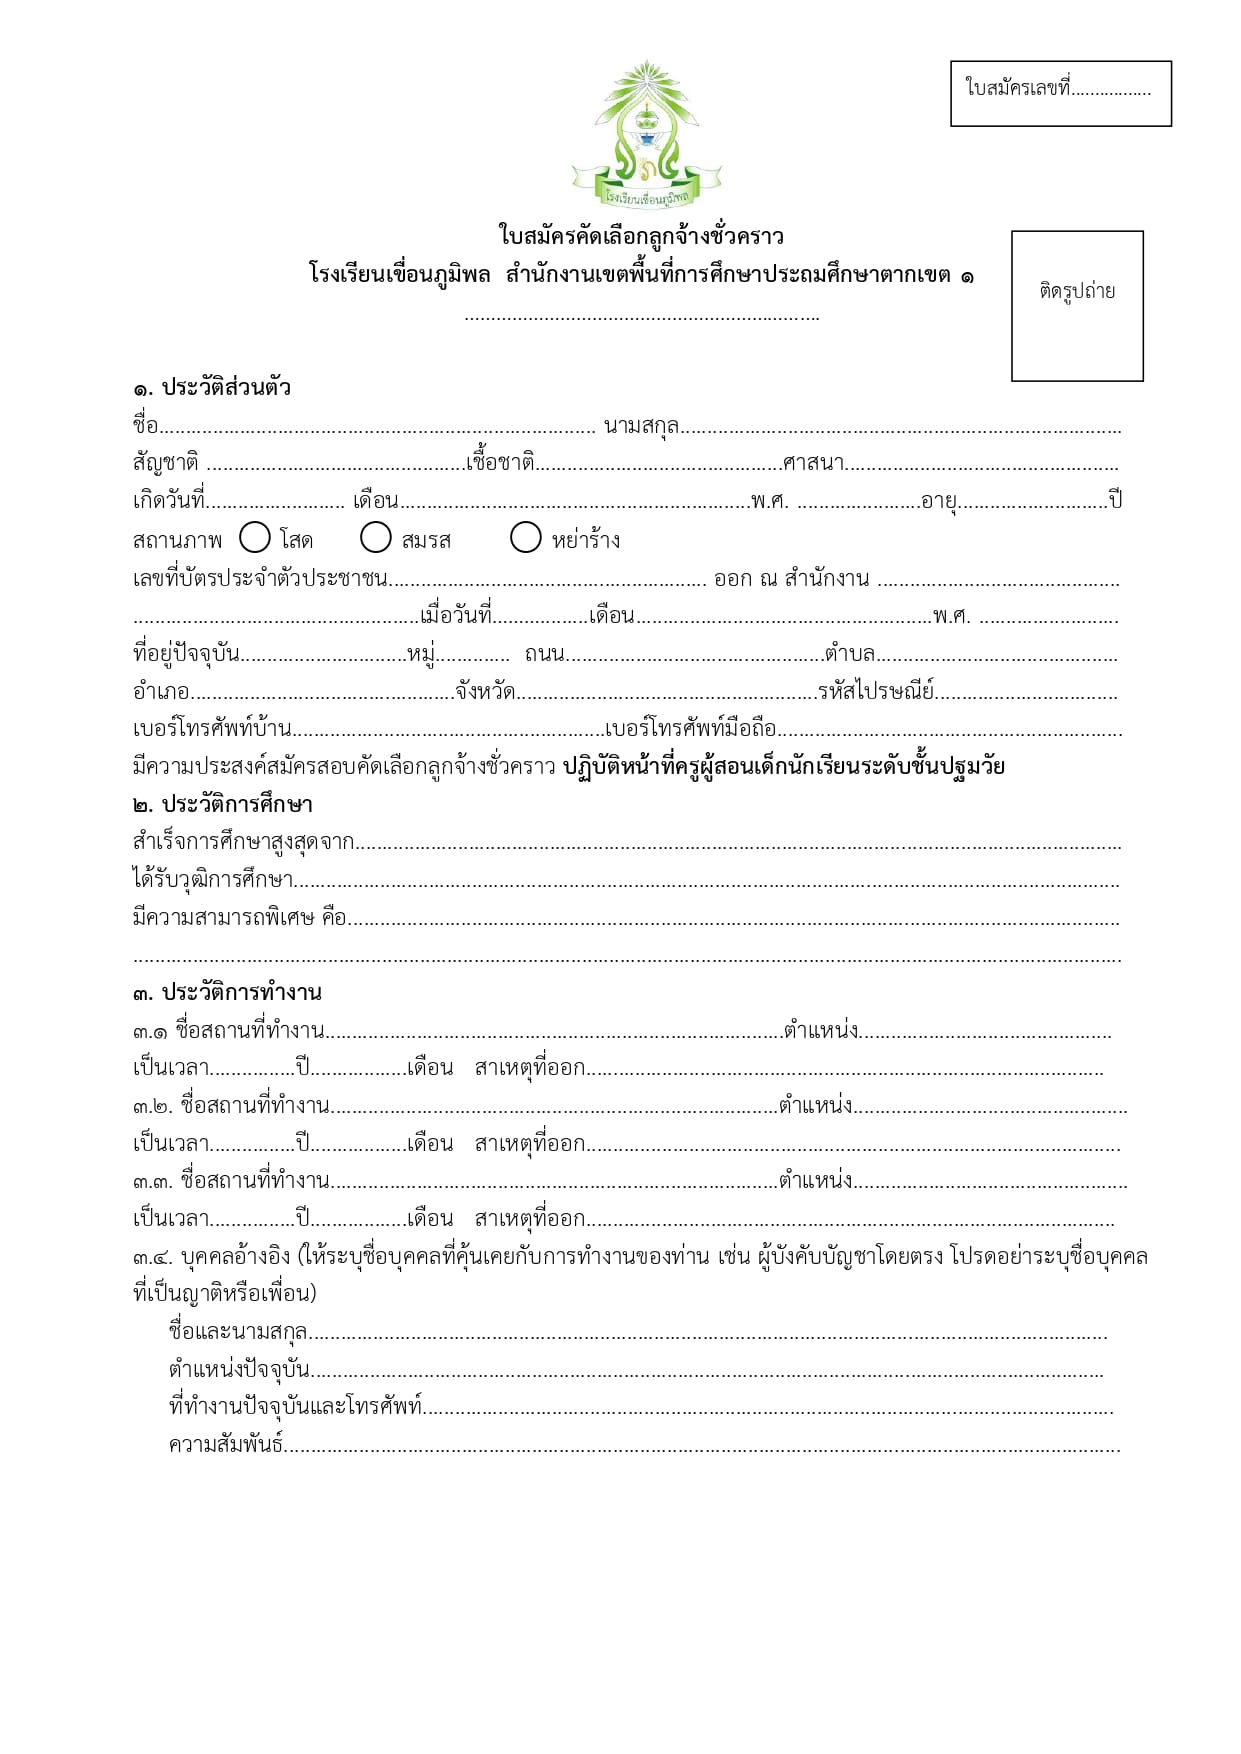 ใบสมัครเลขที่.................
โรงเรียนเขื่อนภูมิพล
ใบสมัครคัดเลือกลูกจ้างชั่วคราว
โรงเรียนเขื่อนภูมิพล สำนักงานเขตพื้นที่การศึกษาประถมศึกษาตากเขต ๑
..................................................................
ติดรูปถ่าย
๑. ประวัติส่วนตัว
ชื่อ................................................................................. นามสกุล..................................................................................
สัญชาติ ................................................เชื้อชาติ..............................................ศาสนา...................................................
เกิดวันที่.......................... เดือน.................................................................พ.ศ. .......................อายุ............................ปี
สถานภาพ โสด สมรส หย่าร้าง
เลขที่บัตรประจำตัวประชาชน........................................................... ออก ณ สำนักงาน .............................................
.....................................................เมื่อวันที่..................เดือน.......................................................พ.ศ. ..........................
ที่อยู่ปัจจุบัน...............................หมู่.............. ถนน................................................ตำบล.............................................
อำเภอ.................................................จังหวัด........................................................รหัสไปรษณีย์..................................
เบอร์โทรศัพท์บ้าน..........................................................เบอร์โทรศัพท์มือถือ................................................................
มีความประสงค์สมัครสอบคัดเลือกลูกจ้างชั่วคราว ปฏิบัติหน้าที่ครูผู้สอนเด็กนักเรียนระดับชั้นปฐมวัย
๒. ประวัติการศึกษา
สำเร็จการศึกษาสูงสุดจาก..............................................................................................................................................
ได้รับวุฒิการศึกษา.........................................................................................................................................................
มีความสามารถพิเศษ คือ...............................................................................................................................................
.......................................................................................................................................................................................
๓. ประวัติการทำงาน
๓.๑ ชื่อสถานที่ทำงาน.....................................................................................ตำแหน่ง...............................................
เป็นเวลา................ปี..................เดือน สาเหตุที่ออก................................................................................................
๓.๒. ชื่อสถานที่ทำงาน...................................................................................ตำแหน่ง...................................................
เป็นเวลา................ปี..................เดือน สาเหตุที่ออก...................................................................................................
๓.๓. ชื่อสถานที่ทำงาน...................................................................................ตำแหน่ง...................................................
เป็นเวลา................ปี..................เดือน สาเหตุที่ออก..................................................................................................
๓.๔. บุคคลอ้างอิง (ให้ระบุชื่อบุคคลที่คุ้นเคยกับการทำงานของท่าน เช่น ผู้บังคับบัญชาโดยตรง โปรดอย่าระบุชื่อบุคคล
ที่เป็นญาติหรือเพื่อน)
ชื่อและนามสกุล....................................................................................................................................................
ตำแหน่งปัจจุบัน...................................................................................................................................................
ที่ทำงานปัจจุบันและโทรศัพท์................................................................................................................................
ความสัมพันธ์...........................................................................................................................................................